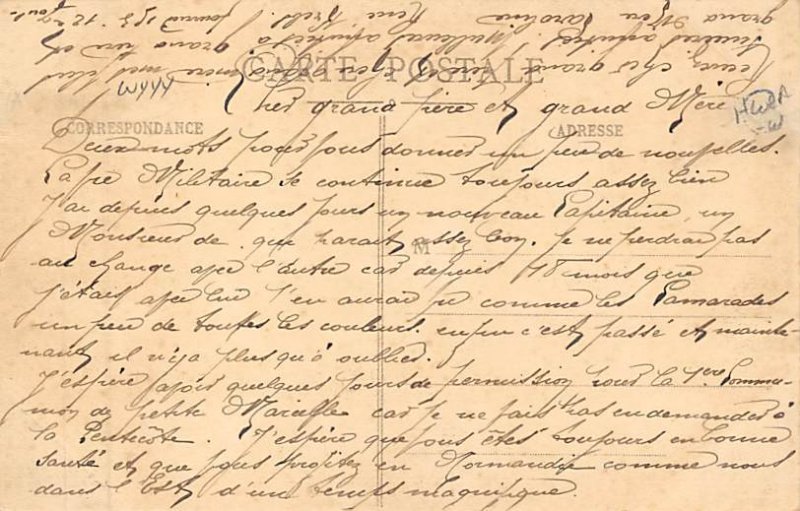 CARTE POSTALE
CORRESPONDANCE
ADRESSE
Cher grand Père et grand Mère
Deux mots pour vous donner un peu de nouvelles.
La vie Militaire se continue toujours assez bien
J'ai depuis quelques jours un nouveau Capitaine, un
Monsieur de. que parait assez bon. Je ne perdrai pas
au change avec l'autre car depuis 18 mois que
j'étais avec lui j'en aurai vu comme les Camarades
un peu de toutes les couleurs. enfin c'est passé et mainte-
nant il n'y a plus qu'à oublier.
J'espère avoir quelques jours de permission pour la 1ère Commu-
nion de petite Marcelle car je ne vais pas en demander à
la Pentecôte. J'espère que vous êtes toujours en bonne
santé et que vous profitez en Normandie comme nous
dans l'Est d'un temps magnifique.
Recevez cher grand Père et grand mère mes plus
sincères amitiés. Meilleures amitiés à grand mère
grand Mère Caroline René